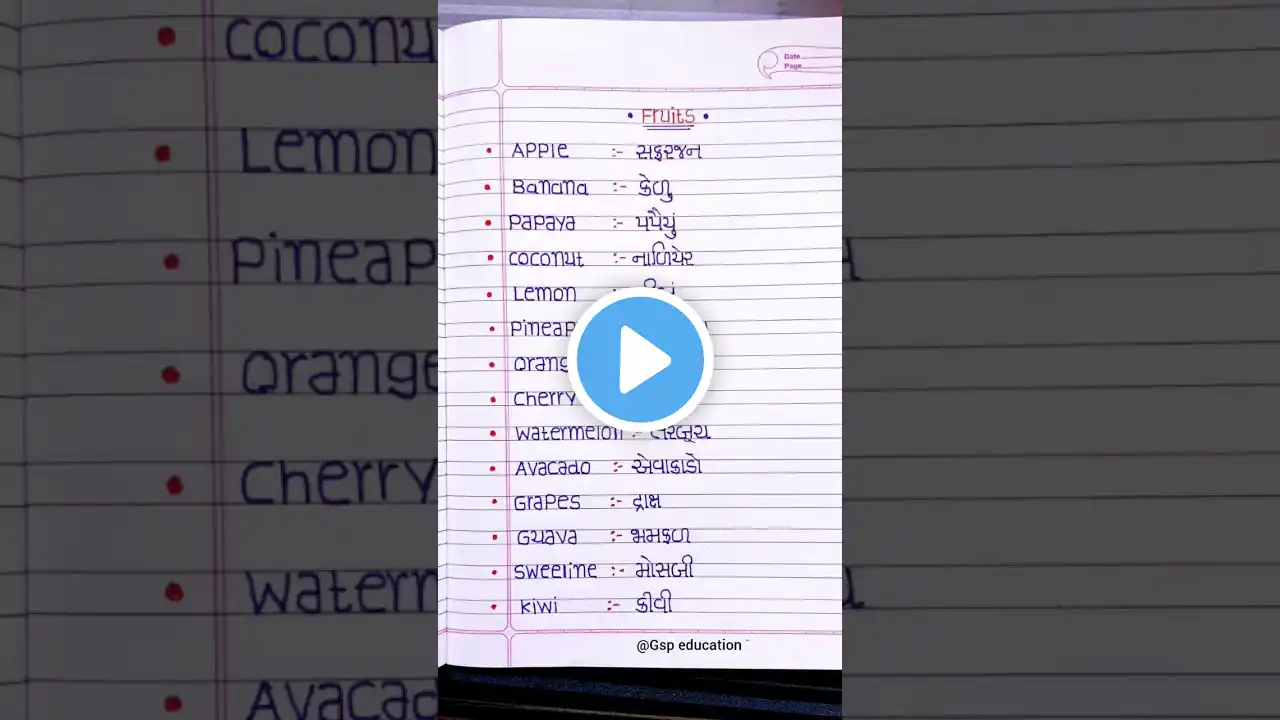 Date
Page
• Fruits •
• Apple :- સફરજન
• Banana :- કેળુ
• Papaya :- પપૈયું
• coconut :- નાળિયેર
• Lemon
• Pineap
• orang
• cherry
• watermelon :- તરબૂચ
• Avacado :- એવાકાડો
• Grapes :- દ્રાક્ષ
• Guava :- જામફળ
• sweeline :- મોસબી
• kiwi :- કીવી
@Gsp education
coconu
Lemon
Pineap
orange
cherry
watern
Avacad